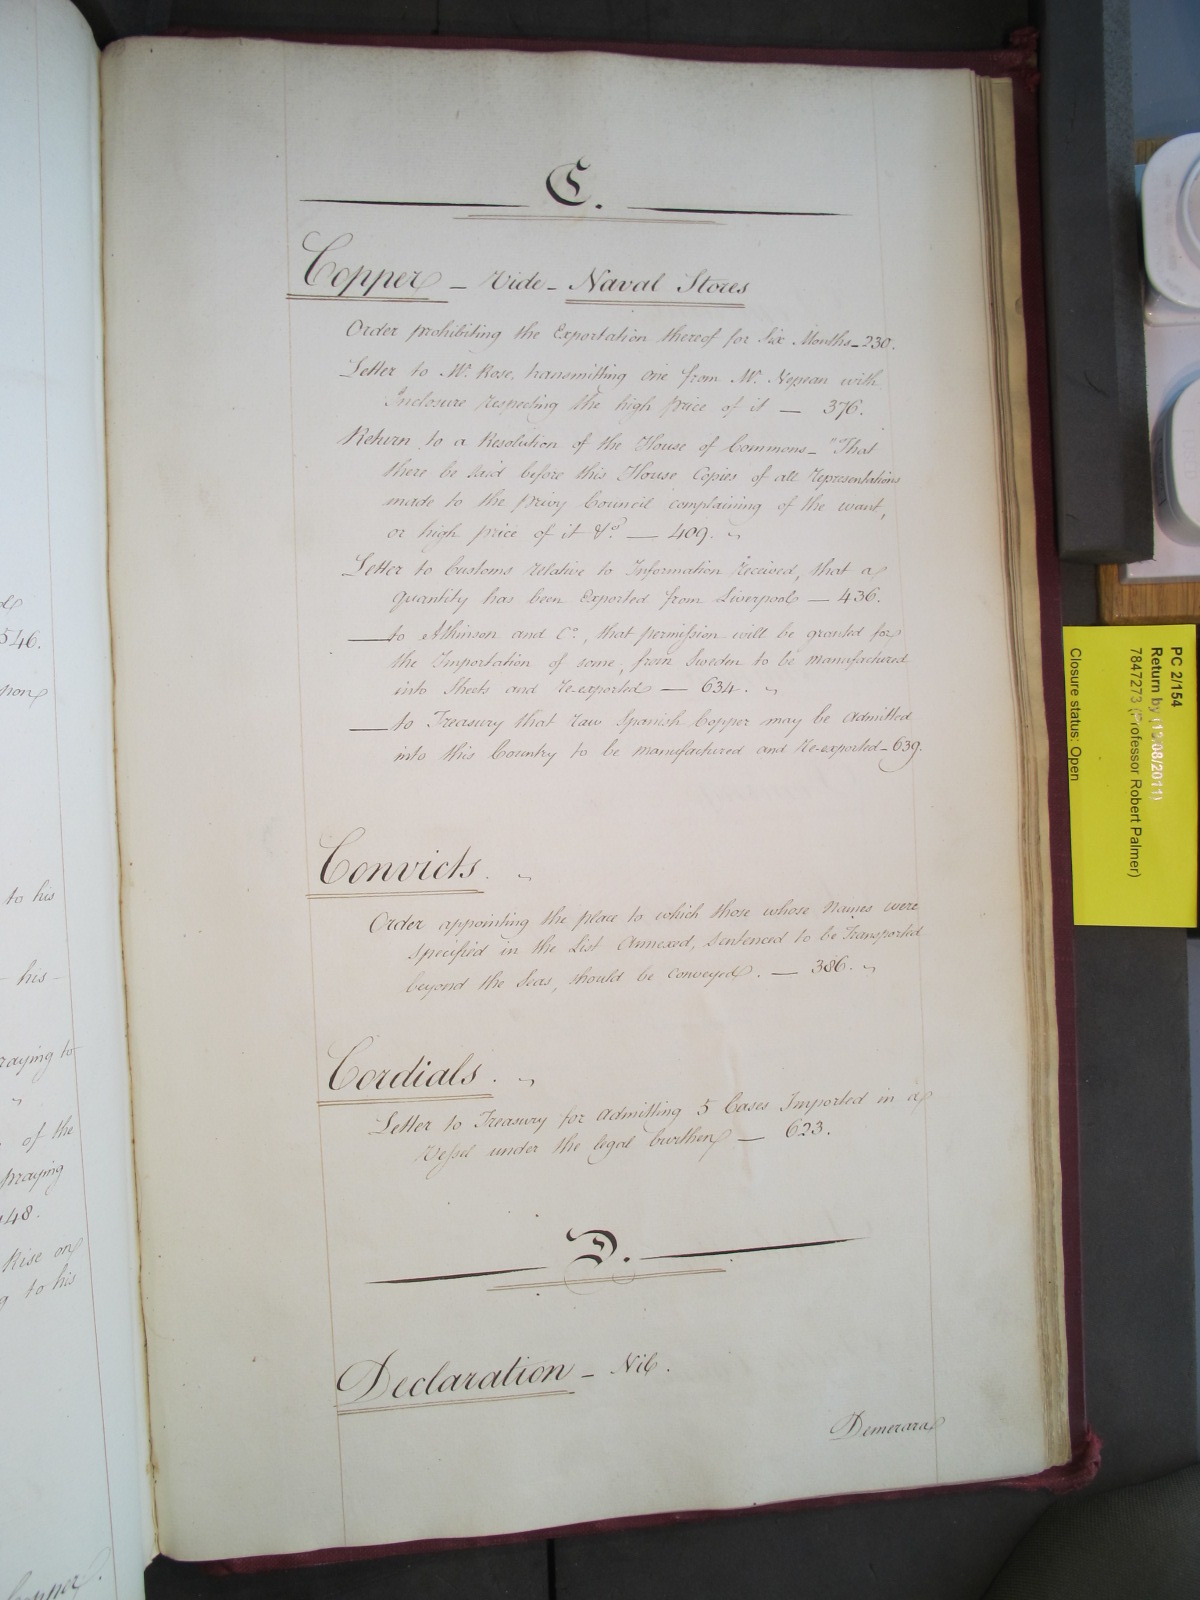 C.
Copper - Vide - Naval Stores
Order prohibiting the Exportation thereof for Six Months - 230.
Letter to Mr. Rose, transmitting one from Mr. Nepean with
Inclosure respecting the high price of it — 376.
Return to a Resolution of the House of Commons - "That
there be laid before this House Copies of all Representations
made to the Privy Council complaining of the want,
or high price of it &c. — 409.
Letter to Customs relative to Information received, that a
quantity has been Exported from Liverpool — 436.
— to Atkinson and Co., that permission will be granted for
the Importation of some, from Sweden to be manufactured
into Sheets and Re-exported — 634.
— to Treasury that raw Spanish Copper may be admitted
into this Country to be manufactured and Re-exported - 639.
Convicts.
Order appointing the place to which those whose Names were
specified in the List Annexed, Sentenced to be Transported
beyond the Seas, should be Conveyed. — 386.
Cordials.
Letter to Treasury for admitting 5 Cases Imported in a
Vessel under the legal burthen — 623.
D.
Declaration - Nil.
Demerara
546.
to his
- his -
raying to
of the
praying
148.
Rise on
to his
Copper.
PC 2/154
Return by (12/08/2011)
7847273 (Professor Robert Palmer)
Closure status: Open